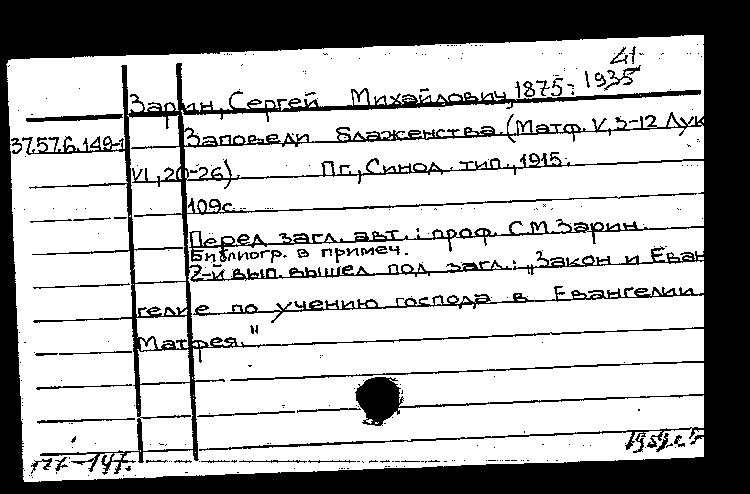 41
Зарин, Сергей Михайлович, 1875-1935
37.57.6.149-1 Заповеди блаженства. (Матф. V, 3-12 Лук
VI, 20-26). Пг., Синод. тип., 1915.
109с.
Перед загл. авт.: проф. С.М. Зарин.
Библиогр. в примеч.
2-й вып. вышел под загл.: „Закон и Еван
гелие по учению господа в Евангелии
Матфея."